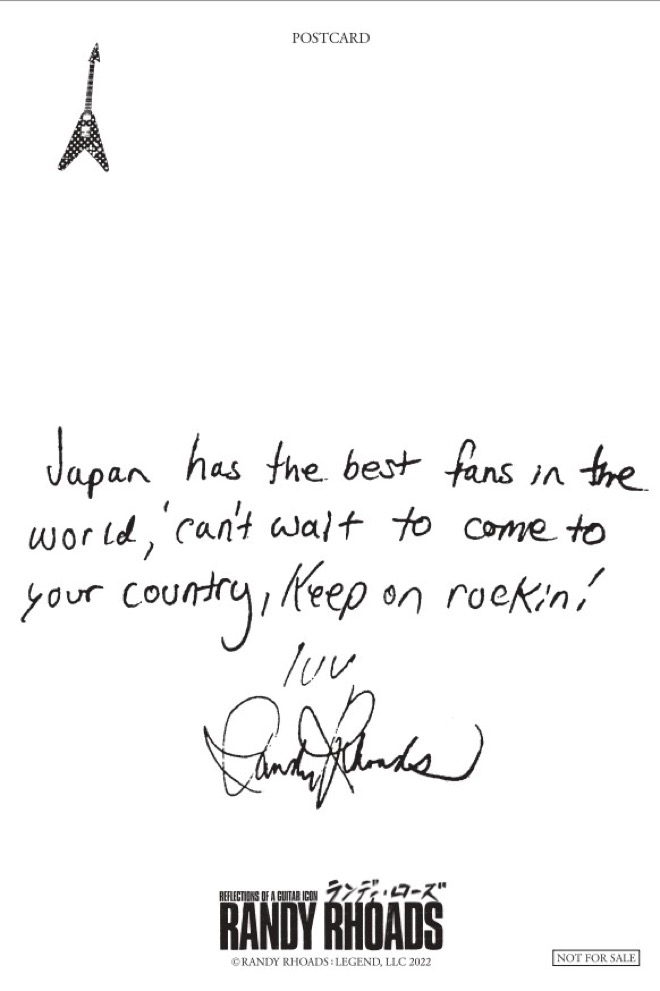 POSTCARD
Japan has the best fans in the
world, can't wait to come to
your country, Keep on rockin!
luv
Randy Rhoads
REFLECTIONS OF A GUITAR ICON ランディ・ローズ
RANDY RHOADS
© RANDY RHOADS : LEGEND, LLC 2022
NOT FOR SALE